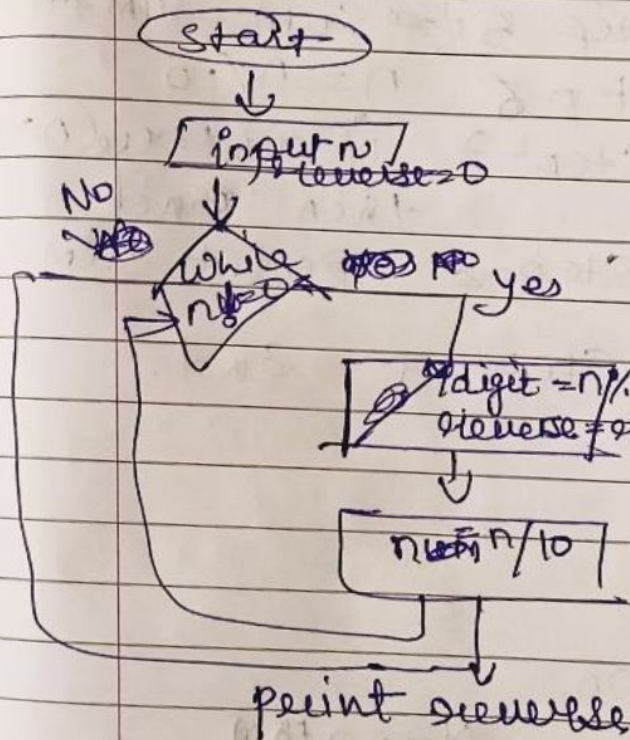 Start
input n
reverse=0
No
while
n!=0
yes
digit = n%
reverse =
n = n/10
print reverse